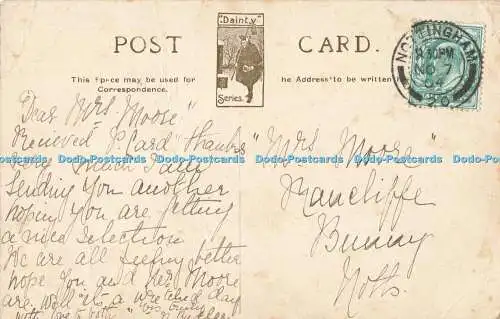 "Dainty"
Series.
POST CARD.
This space may be used for
Correspondence.
he Address to be written
NOTTINGHAM
NO 7
Dear Mrs Moose"
Recieved P. Card "thanks
very much I am
sending you another
hopeing you are getting
a nice selection
We are all feeling better
hope you and Mr Moore
are well "its a wretched day
with love to both
"Mrs Moore"
Rancliffe
Bunny
Notts.
Dodo-Postcards Dodo-Postcards Dodo-Postcards Dodo-Postcards Dodo-Postcards